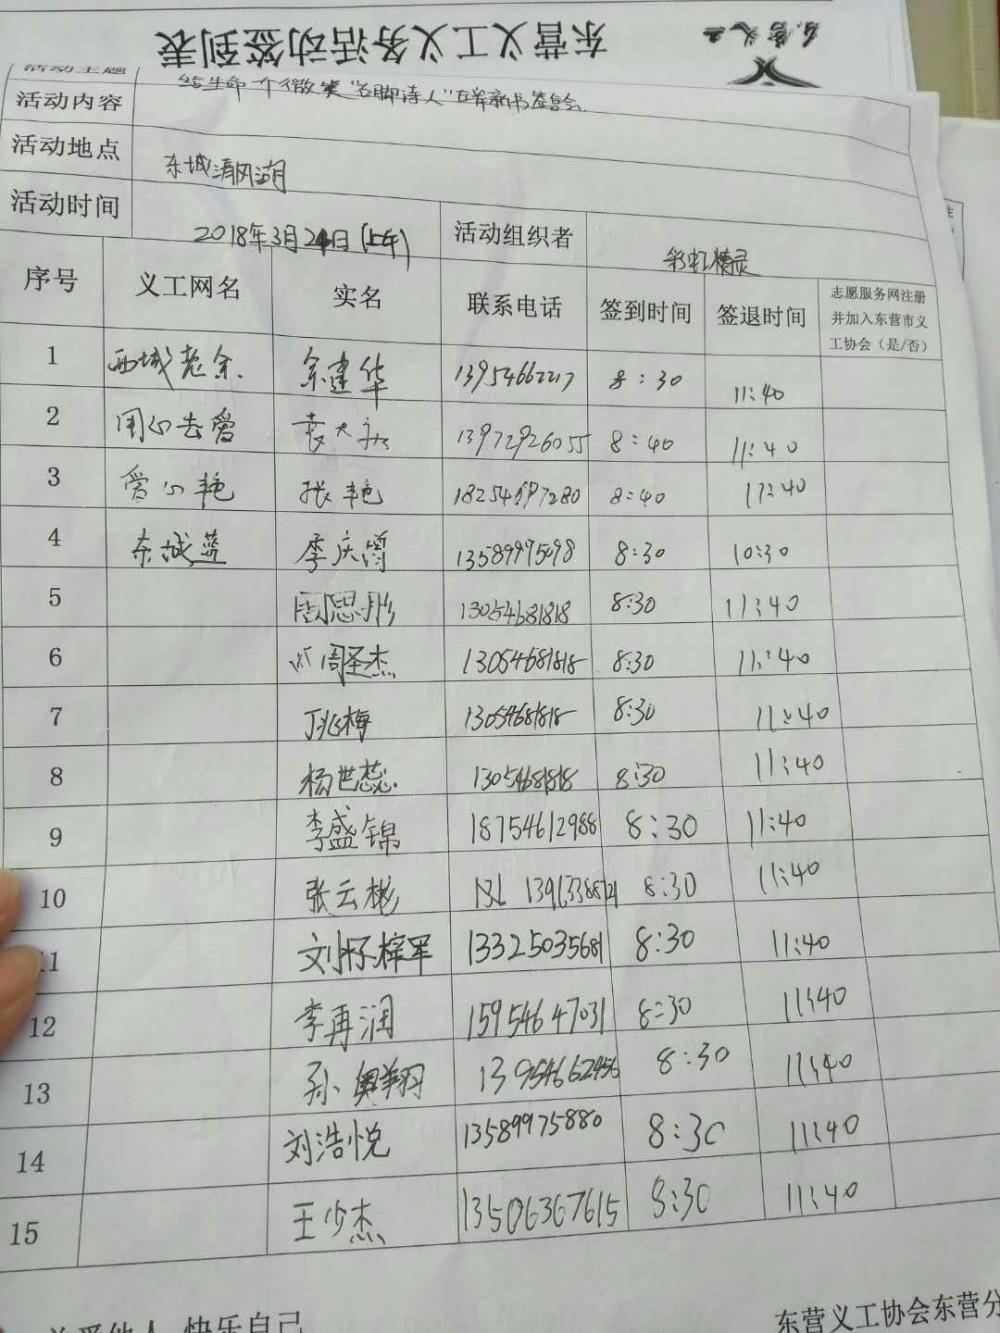 东营义工义务活动签到表
东营义工
活动主题
活动内容 给生命一个微笑"名脚诗人" 新书签售会
活动地点 东城清风湖
活动时间 2018年3月24日(上午) 活动组织者 彩虹精灵
序号 义工网名 实名 联系电话 签到时间 签退时间 志愿服务网注册并加入东营市义工协会(是/否)
1 西城老余 余建华 13954662217 8:30 11:40
2 用心去爱 袁 13972926055 8:40 11:40
3 爱心艳 张艳 8:40 11:40
4 东城蓝 李庆 13589975098 8:30 10:30
5 周思彤 13054681818 8:30 11:40
6 周圣杰 13054681818 8:30 11:40
7 丁兆梅 13054681818 8:30 11:40
8 杨世蕊 13054681818 8:30 11:40
9 李盛锦 18754612988 8:30 11:40
10 张云彬 8:30 11:40
11 刘 梓军 13325035681 8:30 11:40
12 李再润 15954647031 8:30 11:40
13 孙 翔 13954662456 8:30 11:40
14 刘浩悦 13589975880 8:30 11:40
15 王少杰 13506367615 8:30 11:40
关爱他人 快乐自己 东营义工协会东营分